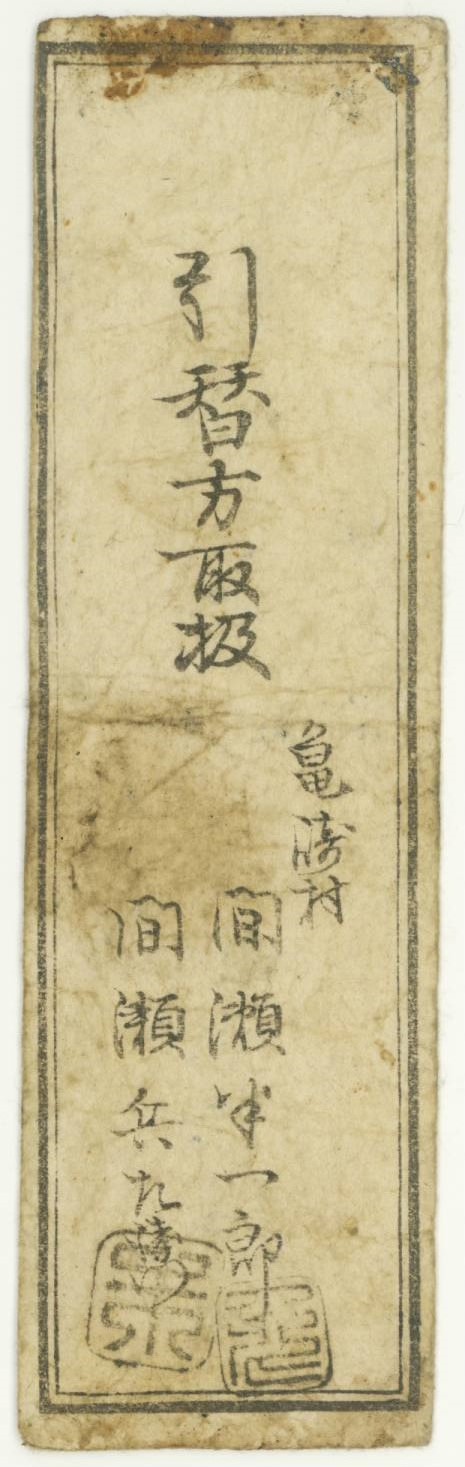 引替方取扱
亀崎村
間瀬半一郎
間瀬兵九